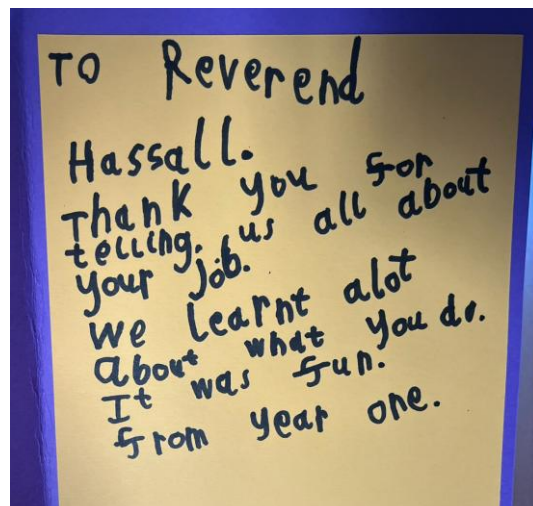 TO Reverend
Hassall.
Thank you for
telling. us all about
your job.
we learnt alot
about what you do.
It was fun.
from year one.